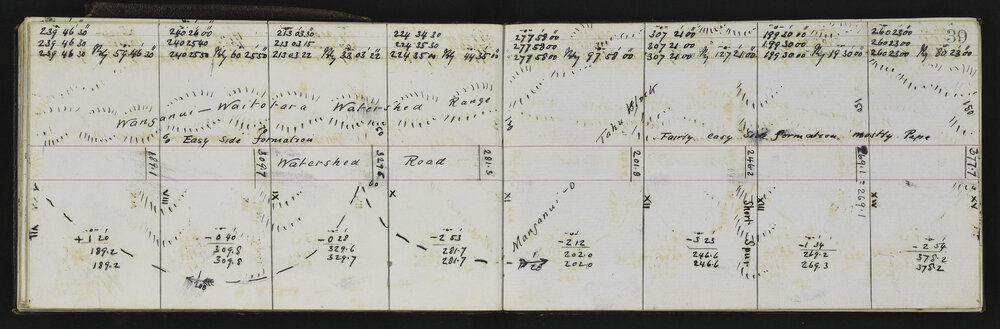 39
239 46 30
239 46 30
239 46 30 Mg 59 46 30
240 26 00
240 25 40
240 25 50 Mg 60 25 50
213 03 30
213 03 15
213 03 22 Mg 33 03 22
224 34 30
224 35 30
224 35 00 Mg 44 35 00
277 58 00
277 58 00
277 58 00 Mg 97 58 00
307 21 00
307 21 00
307 21 00 Mg 127 21 00
199 30 00
199 30 00
199 30 00 Mg 19 30 00
260 23 00
260 23 00
260 23 00 Mg 80 23 00
Wanganui - Waitotara Watershed Range
Easy Side formation
150
Tahu Block
Fairly easy Side formation mostly Papa
150
150
189.1
309.7
Watershed Road
329.6
281.5
201.8
246.2
269.1 = 269.1
377.7
VII
VIII
IX
X
XI
XII
XIII
XIV
60
Manganui-o
Short Spur
+1 20
189.2
189.2
-0 40
309.8
309.8
-0 28
329.6
329.7
-2 53
281.7
281.7
-2 12
202.0
202.0
-3 23
246.6
246.6
-1 34
269.2
269.3
-2 54
378.2
378.2